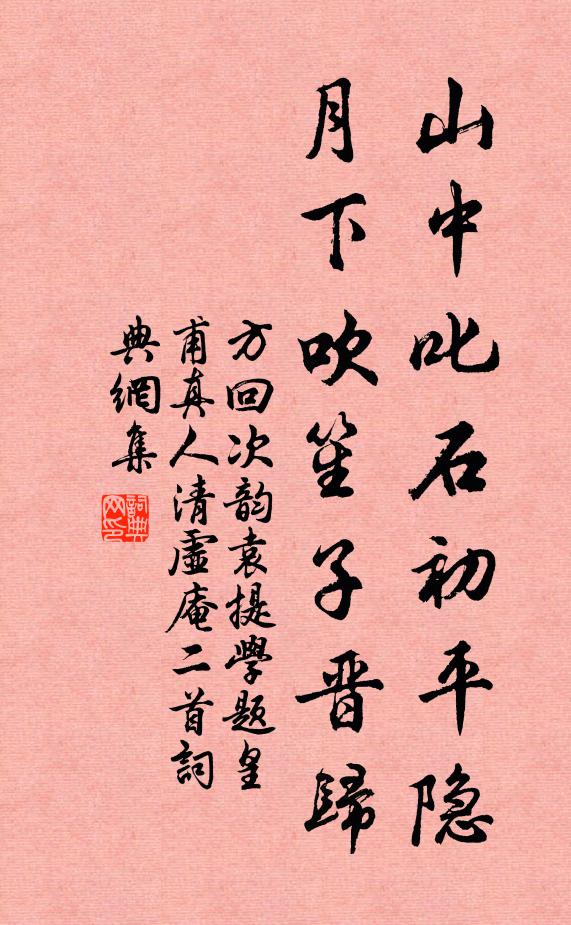 山中叱石初平隐
月下吹笙子晋歸
方回次韵袁提學題皇
甫真人清虚庵二首詞
典網集
詞典
网印